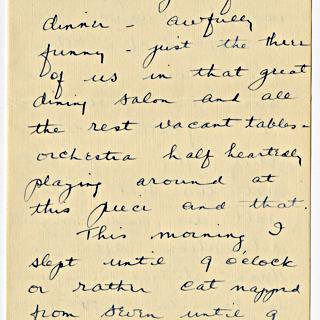 dinner - awfully
funny - just the three
of us in that great
dining salon and all
the rest vacant tables -
orchestra half heartedly
playing around at
this piece and that.
This morning I
slept until 9 o'clock
or rather cat napped
from seven until 9